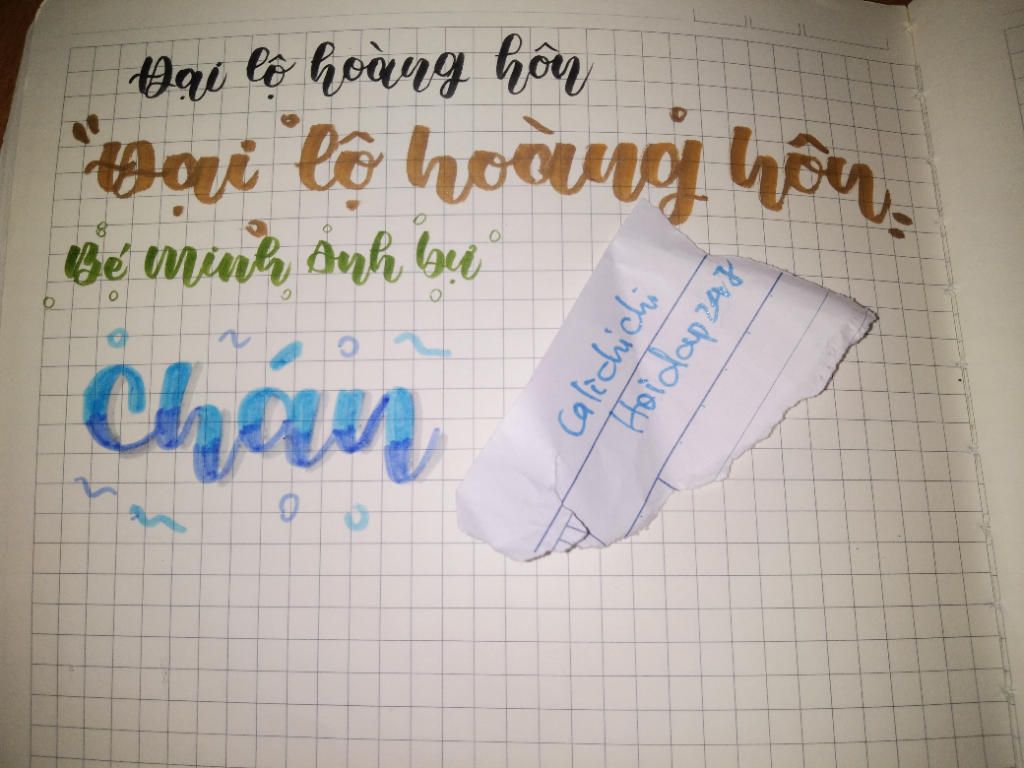 Đại lộ hoàng hôn
"Đại lộ hoàng hôn"
Bé Minh Anh bự
Chán
calichichi
Hoidap247